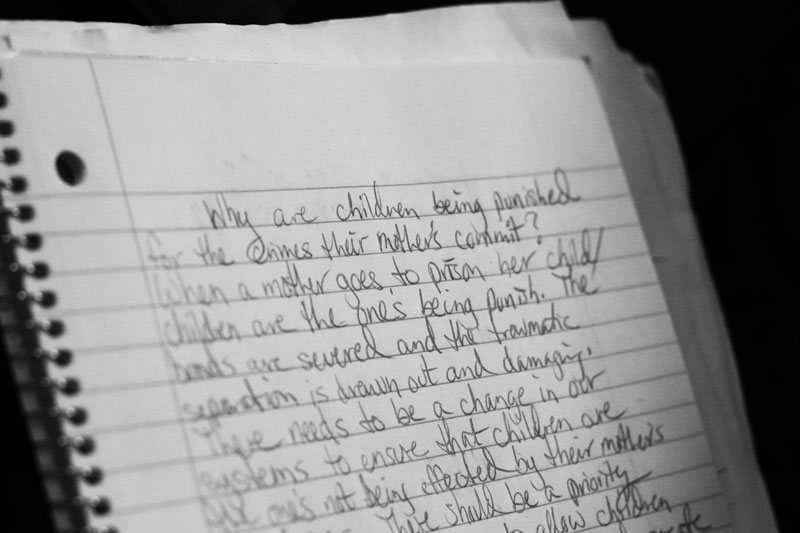 Why are children being punished
for the crimes their mother's commit?
When a mother goes to prison her child/
children are the ones being punish. The
bonds are severed and the traumatic
separation is drawn out and damaging.
There needs to be a change in our
systems to ensure that children are
the one's not being affected by their mother's
There should be a priority
to allow children